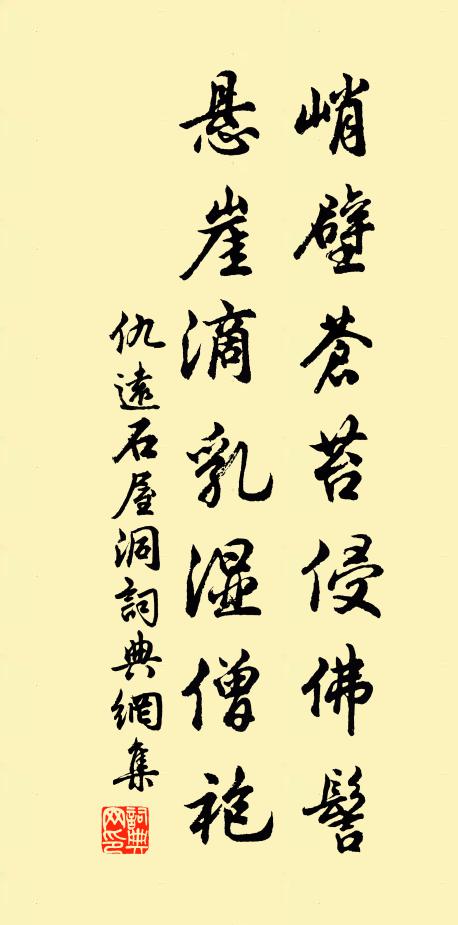 峭壁蒼苔侵佛髻
悬崖滴乳湿僧袍
仇遠石屋洞詞典網集
詞典网印